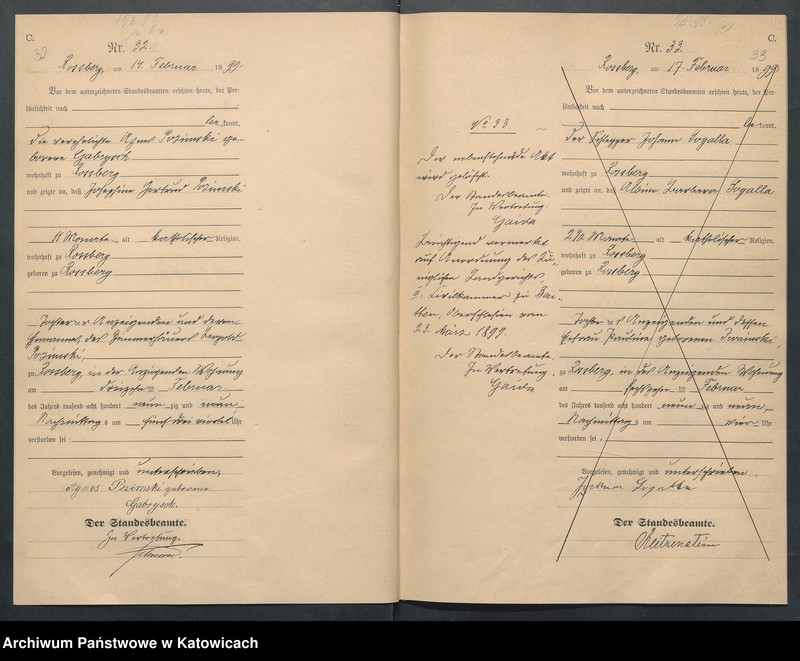 C.
32
Nr. 32.
Rossberg, am 14. Februar 1899.
Vor dem unterzeichneten Standesbeamten erschien heute, der Per-
sönlichkeit nach
be kannt,
die verehelichte Agnes Pozimski ge-
borene Gabrysch
wohnhaft zu Rossberg
und zeigte an, daß Josephine Gertrud Pozimski
11 Monate alt katholischer Religion,
wohnhaft zu Rossberg
geboren zu Rossberg
Tochter der Anzeigenden und deren
Ehemannes, des Zimmerhäuers Leopold
Pozimski,
zu Rossberg, in der Anzeigenden Wohnung
am dreizehnten Februar
des Jahres tausend acht hundert neun zig und neun,
Nachmittags um fünf drei viertel Uhr
verstorben sei
Vorgelesen, genehmigt und unterschrieben.
Agnes Pozimski geborene
Gabrysch.
Der Standesbeamte.
In Vertretung.
No 33.
Der nebenstehende Akt
wird gelöscht.
Der Standesbeamte.
In Vertretung.
Gaida
Berichtigend vermerkt
auf Anordnung des Kö-
niglichen Landgerichts,
II. Civilkammer zu Beu-
then, Oberschlesien vom
23. März 1899.
Der Standesbeamte.
In Vertretung.
Gaida
C.
33
Nr. 33.
Rossberg, am 17. Februar 1899.
Vor dem unterzeichneten Standesbeamten erschien heute, der Per-
sönlichkeit nach
be kannt,
der Schlepper Johann Sogalla
wohnhaft zu Rossberg
und zeigte an, daß Albina Barbara Sogalla
2½ Monate alt katholischer Religion,
wohnhaft zu Rossberg
geboren zu Rossberg
Tochter des Anzeigenden und dessen
Ehefrau Pauline geborenen Iwainski
zu Rossberg, in des Anzeigenden Wohnung
am sechszehnten Februar
des Jahres tausend acht hundert neun zig und neun,
Nachmittags um vier Uhr
verstorben sei
Vorgelesen, genehmigt und unterschrieben.
Johann Sogalla
Der Standesbeamte.
Reitzenstein
Archiwum Państwowe w Katowicach